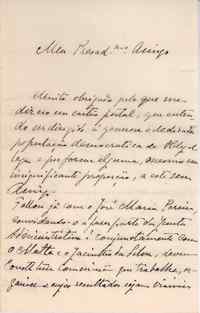 Meu Prezad.mo Amigo
Muito obrigado pelo que me
diz em cartão postal, que enten-
do ser dirigido á generosa e dedicada
população democratica de
e por forma alguma, mesmo em
insignificante proporção, a este seu
Amigo.
Fallou já com o José Maria Pereira
convidando-o a fazer parte da Junta
Administrativa? Conjuntamente com
o Matta e o Jacintho da Silva, devem
Constituir Comissão que trabalhe, or-
ganise e cujos resultados sejam